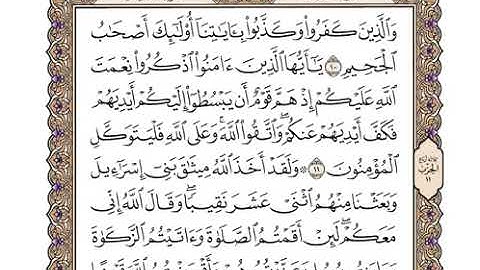 وَٱلَّذِينَ كَفَرُوا۟ وَكَذَّبُوا۟ بِـَٔايَـٰتِنَآ أُو۟لَـٰٓئِكَ أَصْحَـٰبُ
ٱلْجَحِيمِ ١٠ يَـٰٓأَيُّهَا ٱلَّذِينَ ءَامَنُوا۟ ٱذْكُرُوا۟ نِعْمَتَ
ٱللَّهِ عَلَيْكُمْ إِذْ هَمَّ قَوْمٌ أَن يَبْسُطُوٓا۟ إِلَيْكُمْ أَيْدِيَهُمْ
فَكَفَّ أَيْدِيَهُمْ عَنكُمْ ۖ وَٱتَّقُوا۟ ٱللَّهَ ۚ وَعَلَى ٱللَّهِ فَلْيَتَوَكَّلِ
ٱلْمُؤْمِنُونَ ١١ ۞ وَلَقَدْ أَخَذَ ٱللَّهُ مِيثَـٰقَ بَنِىٓ إِسْرَٰٓءِيلَ
وَبَعَثْنَا مِنْهُمُ ٱثْنَىْ عَشَرَ نَقِيبًا ۖ وَقَالَ ٱللَّهُ إِنِّى
مَعَكُمْ ۖ لَئِنْ أَقَمْتُمُ ٱلصَّلَوٰةَ وَءَاتَيْتُمُ ٱلزَّكَوٰةَ
الحزب
١١